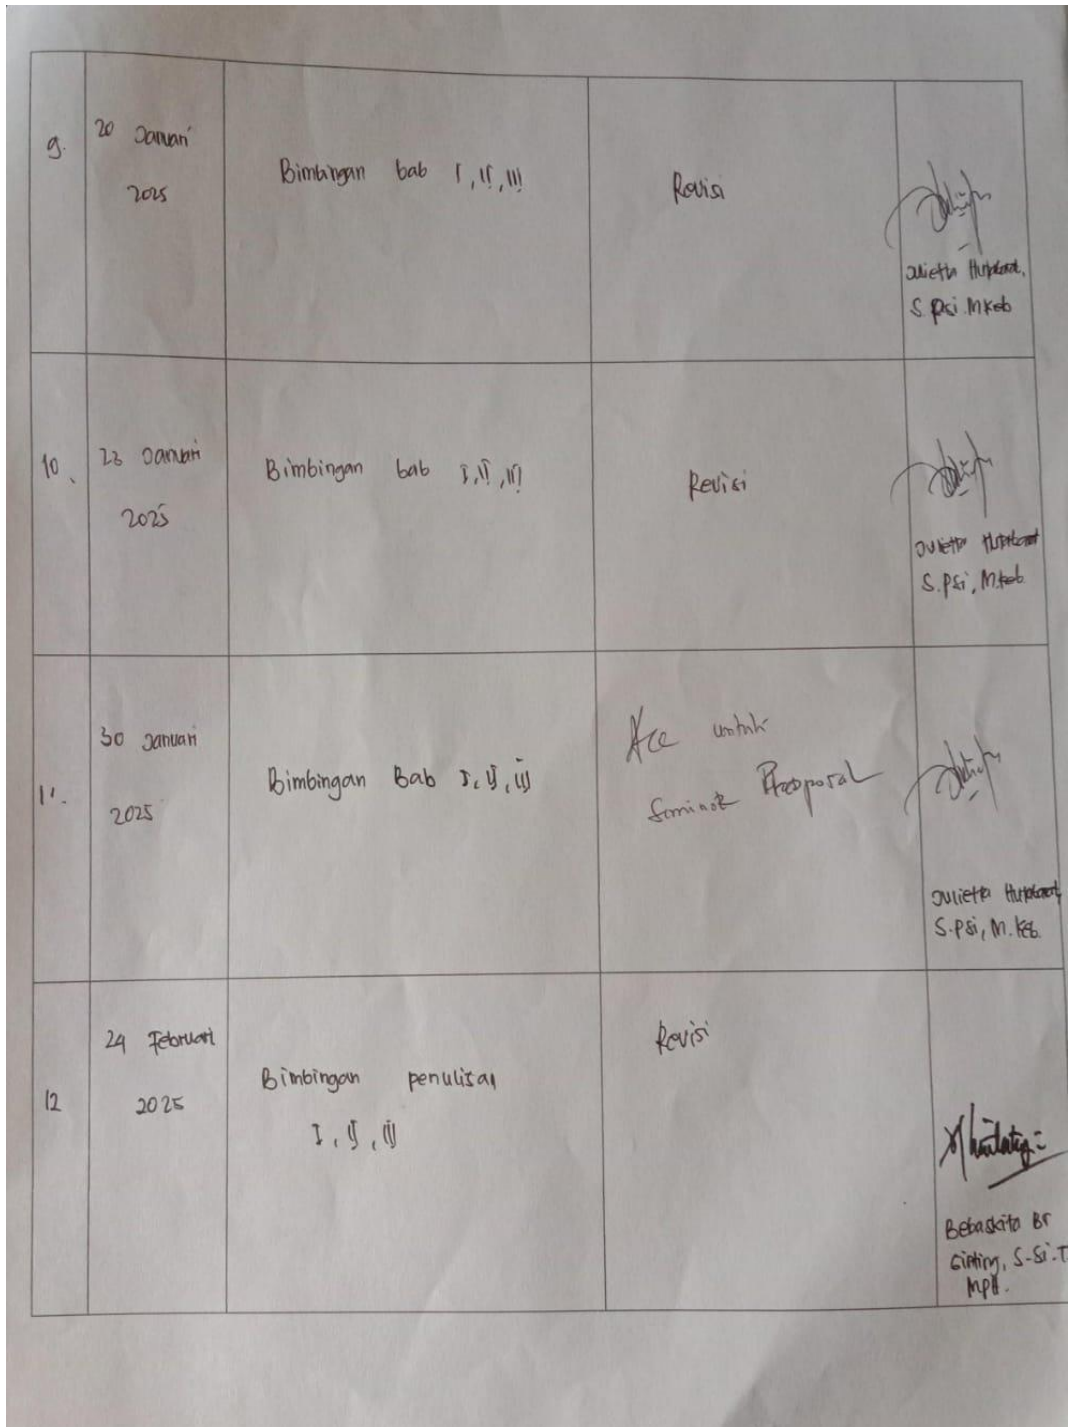 9.
20 Januari
2025
Bimbingan bab I, II, III
Revisi
Julietta Hutabarat,
S.Psi.MKeb
10.
23 Januari
2025
Bimbingan bab I, II, III
Revisi
Julietta Hutabarat
S.Psi, M.Keb.
11.
30 Januari
2025
Bimbingan Bab I, II, III
Acc untuk
Seminar Proposal
Julietta Hutabarat,
S.Psi, M.Keb.
12
24 Februari
2025
Bimbingan penulisan
I, II, III
Revisi
Bebaskita Br
Ginting, S-Si.T
MPH.